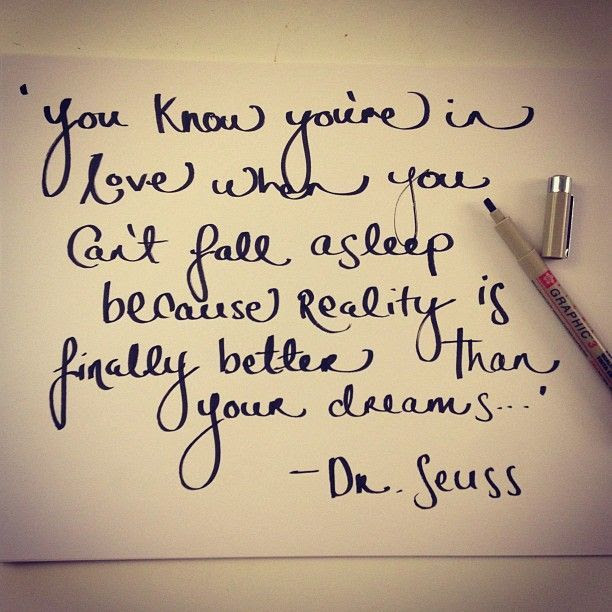 'You Know you're in
love when you
Can't fall asleep
because Reality is
finally better than
your dreams...'
- Dr. Seuss
GRAPHIC 3